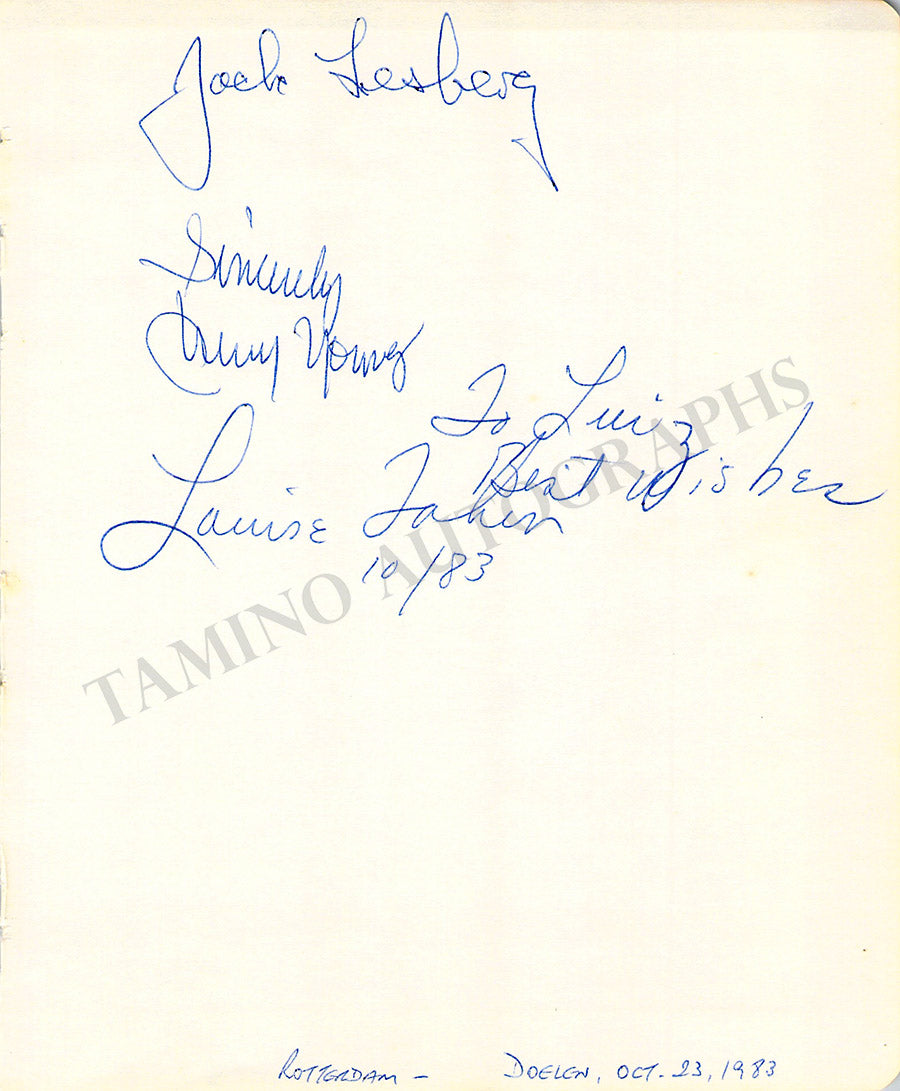 Jack Lesberg
Sincerely
Young
To Luiz
Best Wishes
Louise Tobin
10/83
TAMINO AUTOGRAPHS
ROTTERDAM - DOELEN, OCT. 23, 1983